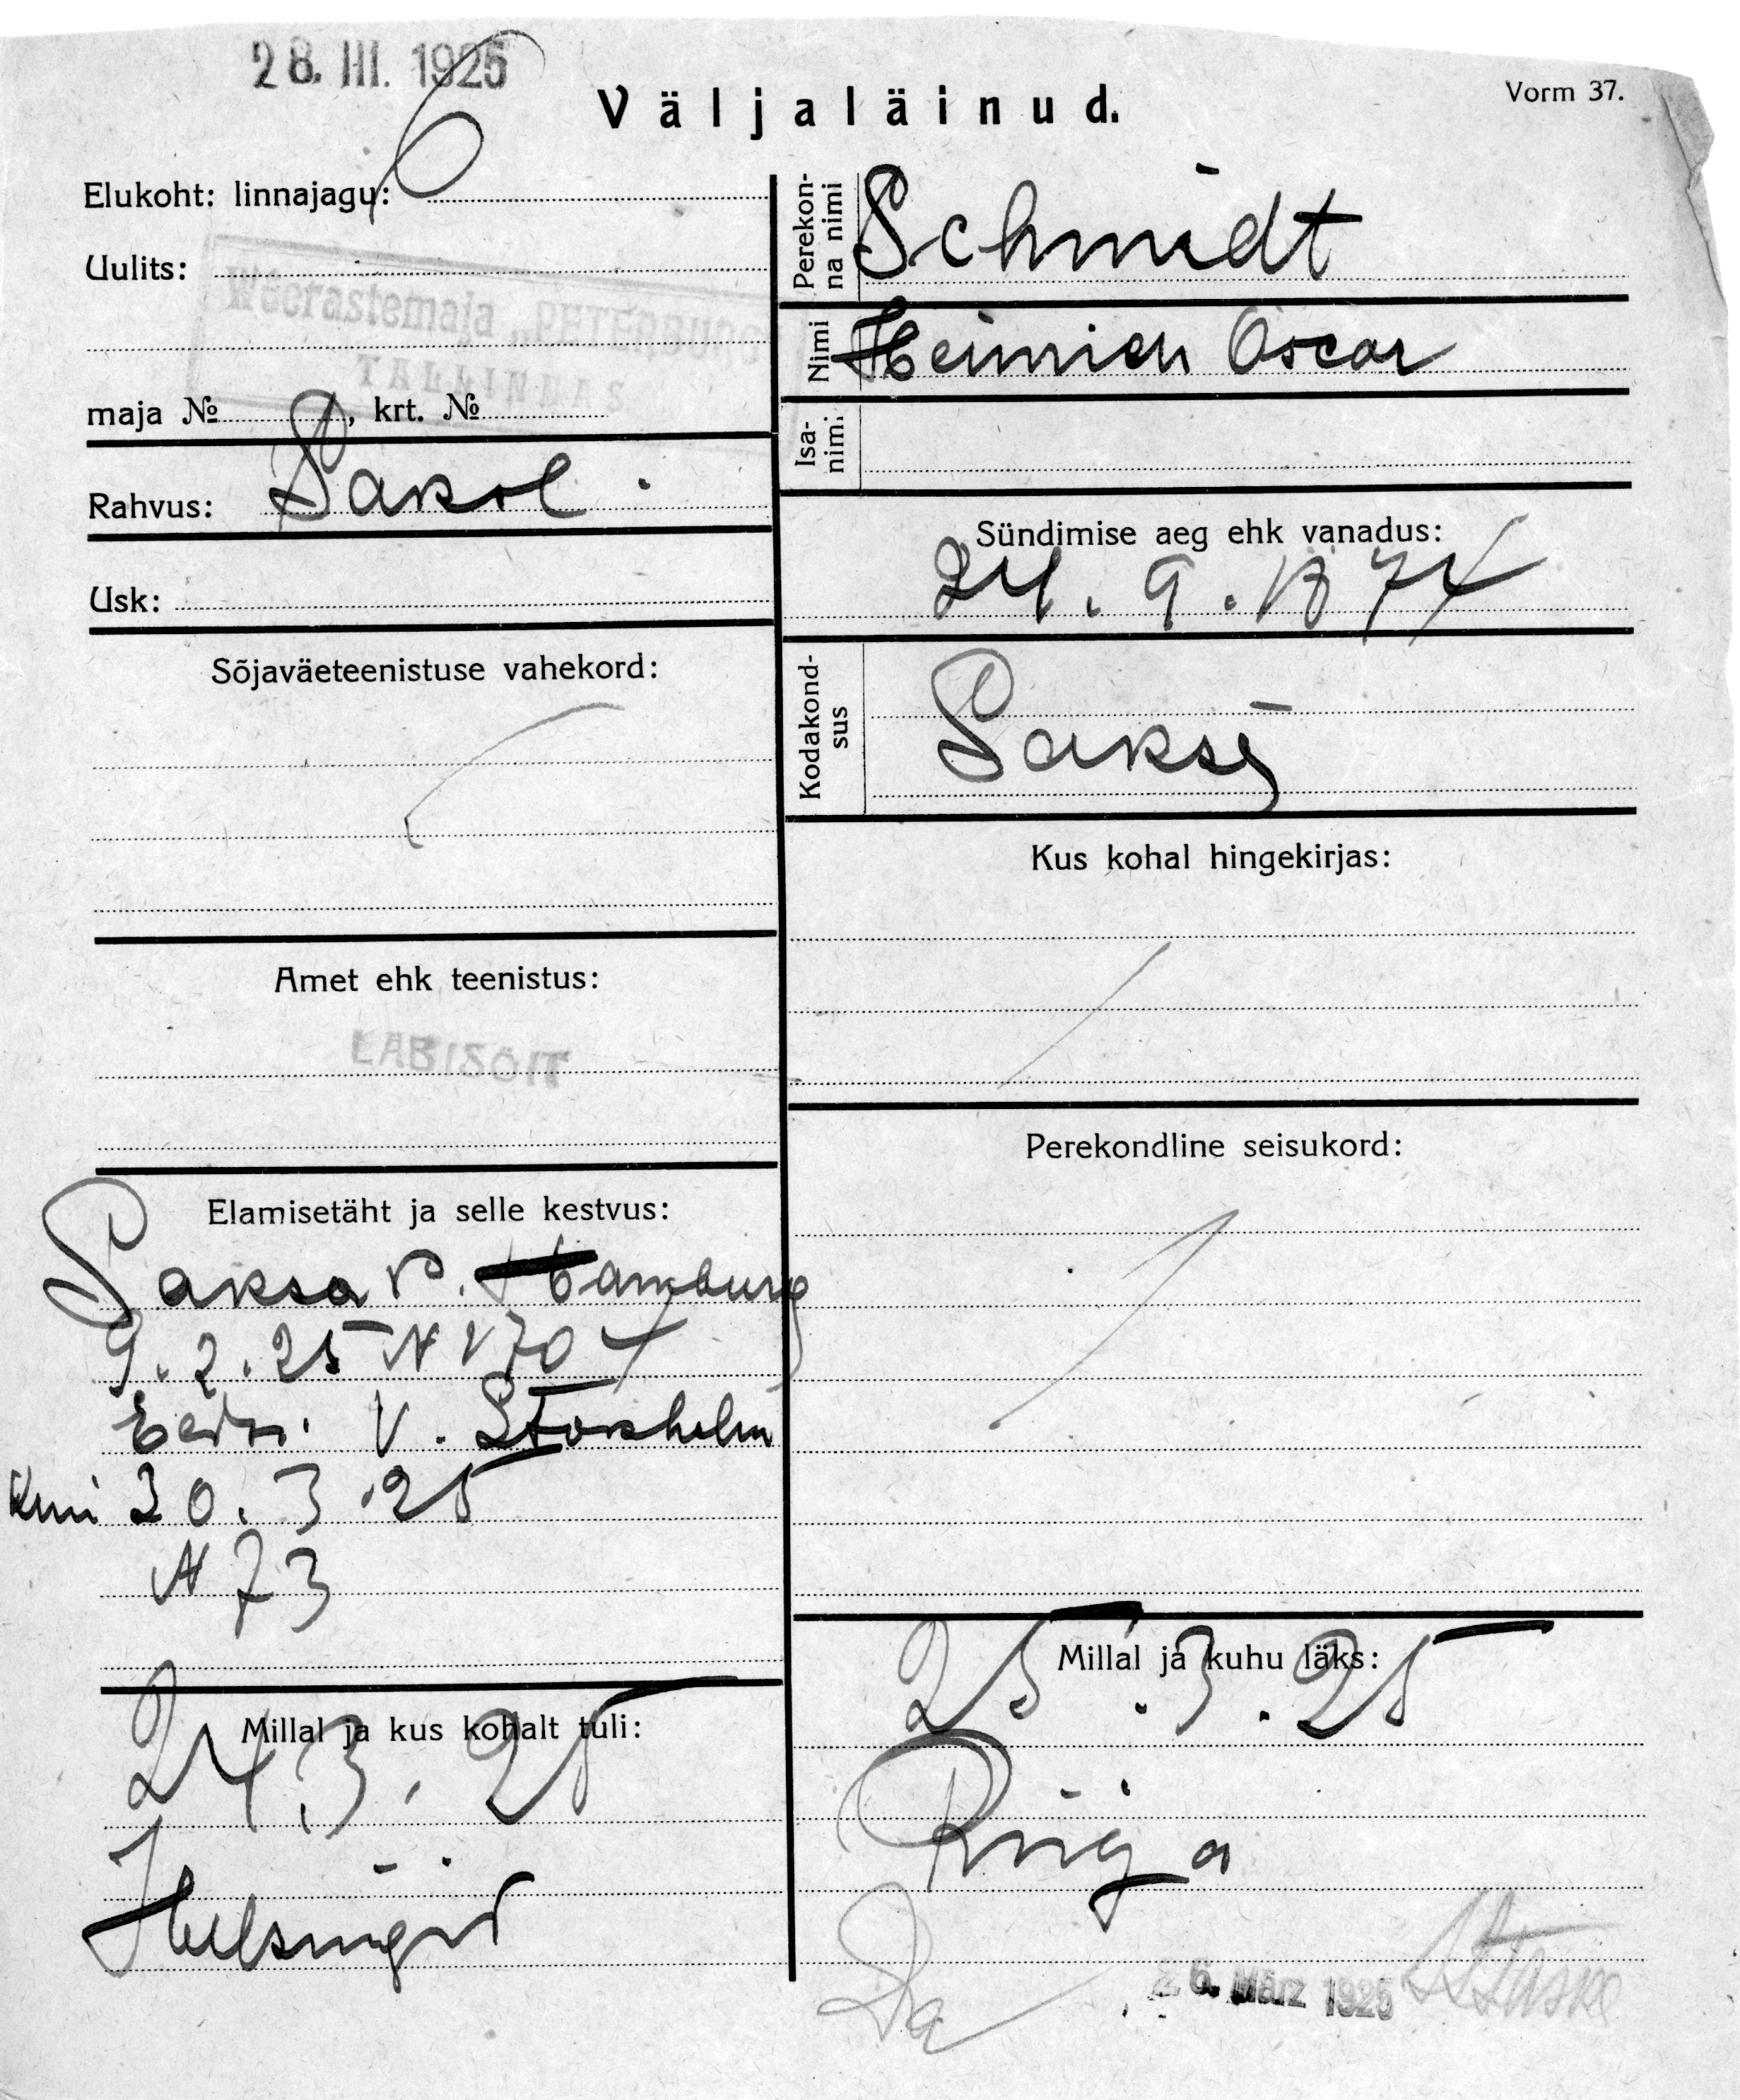 28. III. 1925
Väljaläinud.
Vorm 37.
Elukoht: linnajagu: 6
Uulits:
Wõerastemaja „PETERBURG
TALLINNAS
maja № , krt. №
Rahvus: Saksl.
Usk:
Sõjaväeteenistuse vahekord:
Amet ehk teenistus:
LÄBISÕIT
Elamisetäht ja selle kestvus:
Saksa P. Hamburg
9.2.25 N 1704
Eesti V. Stokholm
Kuni 30.3.25
N 73
Millal ja kus kohalt tuli:
24.3.25
Helsingist
Perekonna nimi
Schmidt
Nimi
Heinrich Oscar
Isanimi
Sündimise aeg ehk vanadus:
24.9.1874
Kodakondsus
Saksa
Kus kohal hingekirjas:
Perekondline seisukord:
Millal ja kuhu läks:
25.3.25
Riiga
26. März 1925